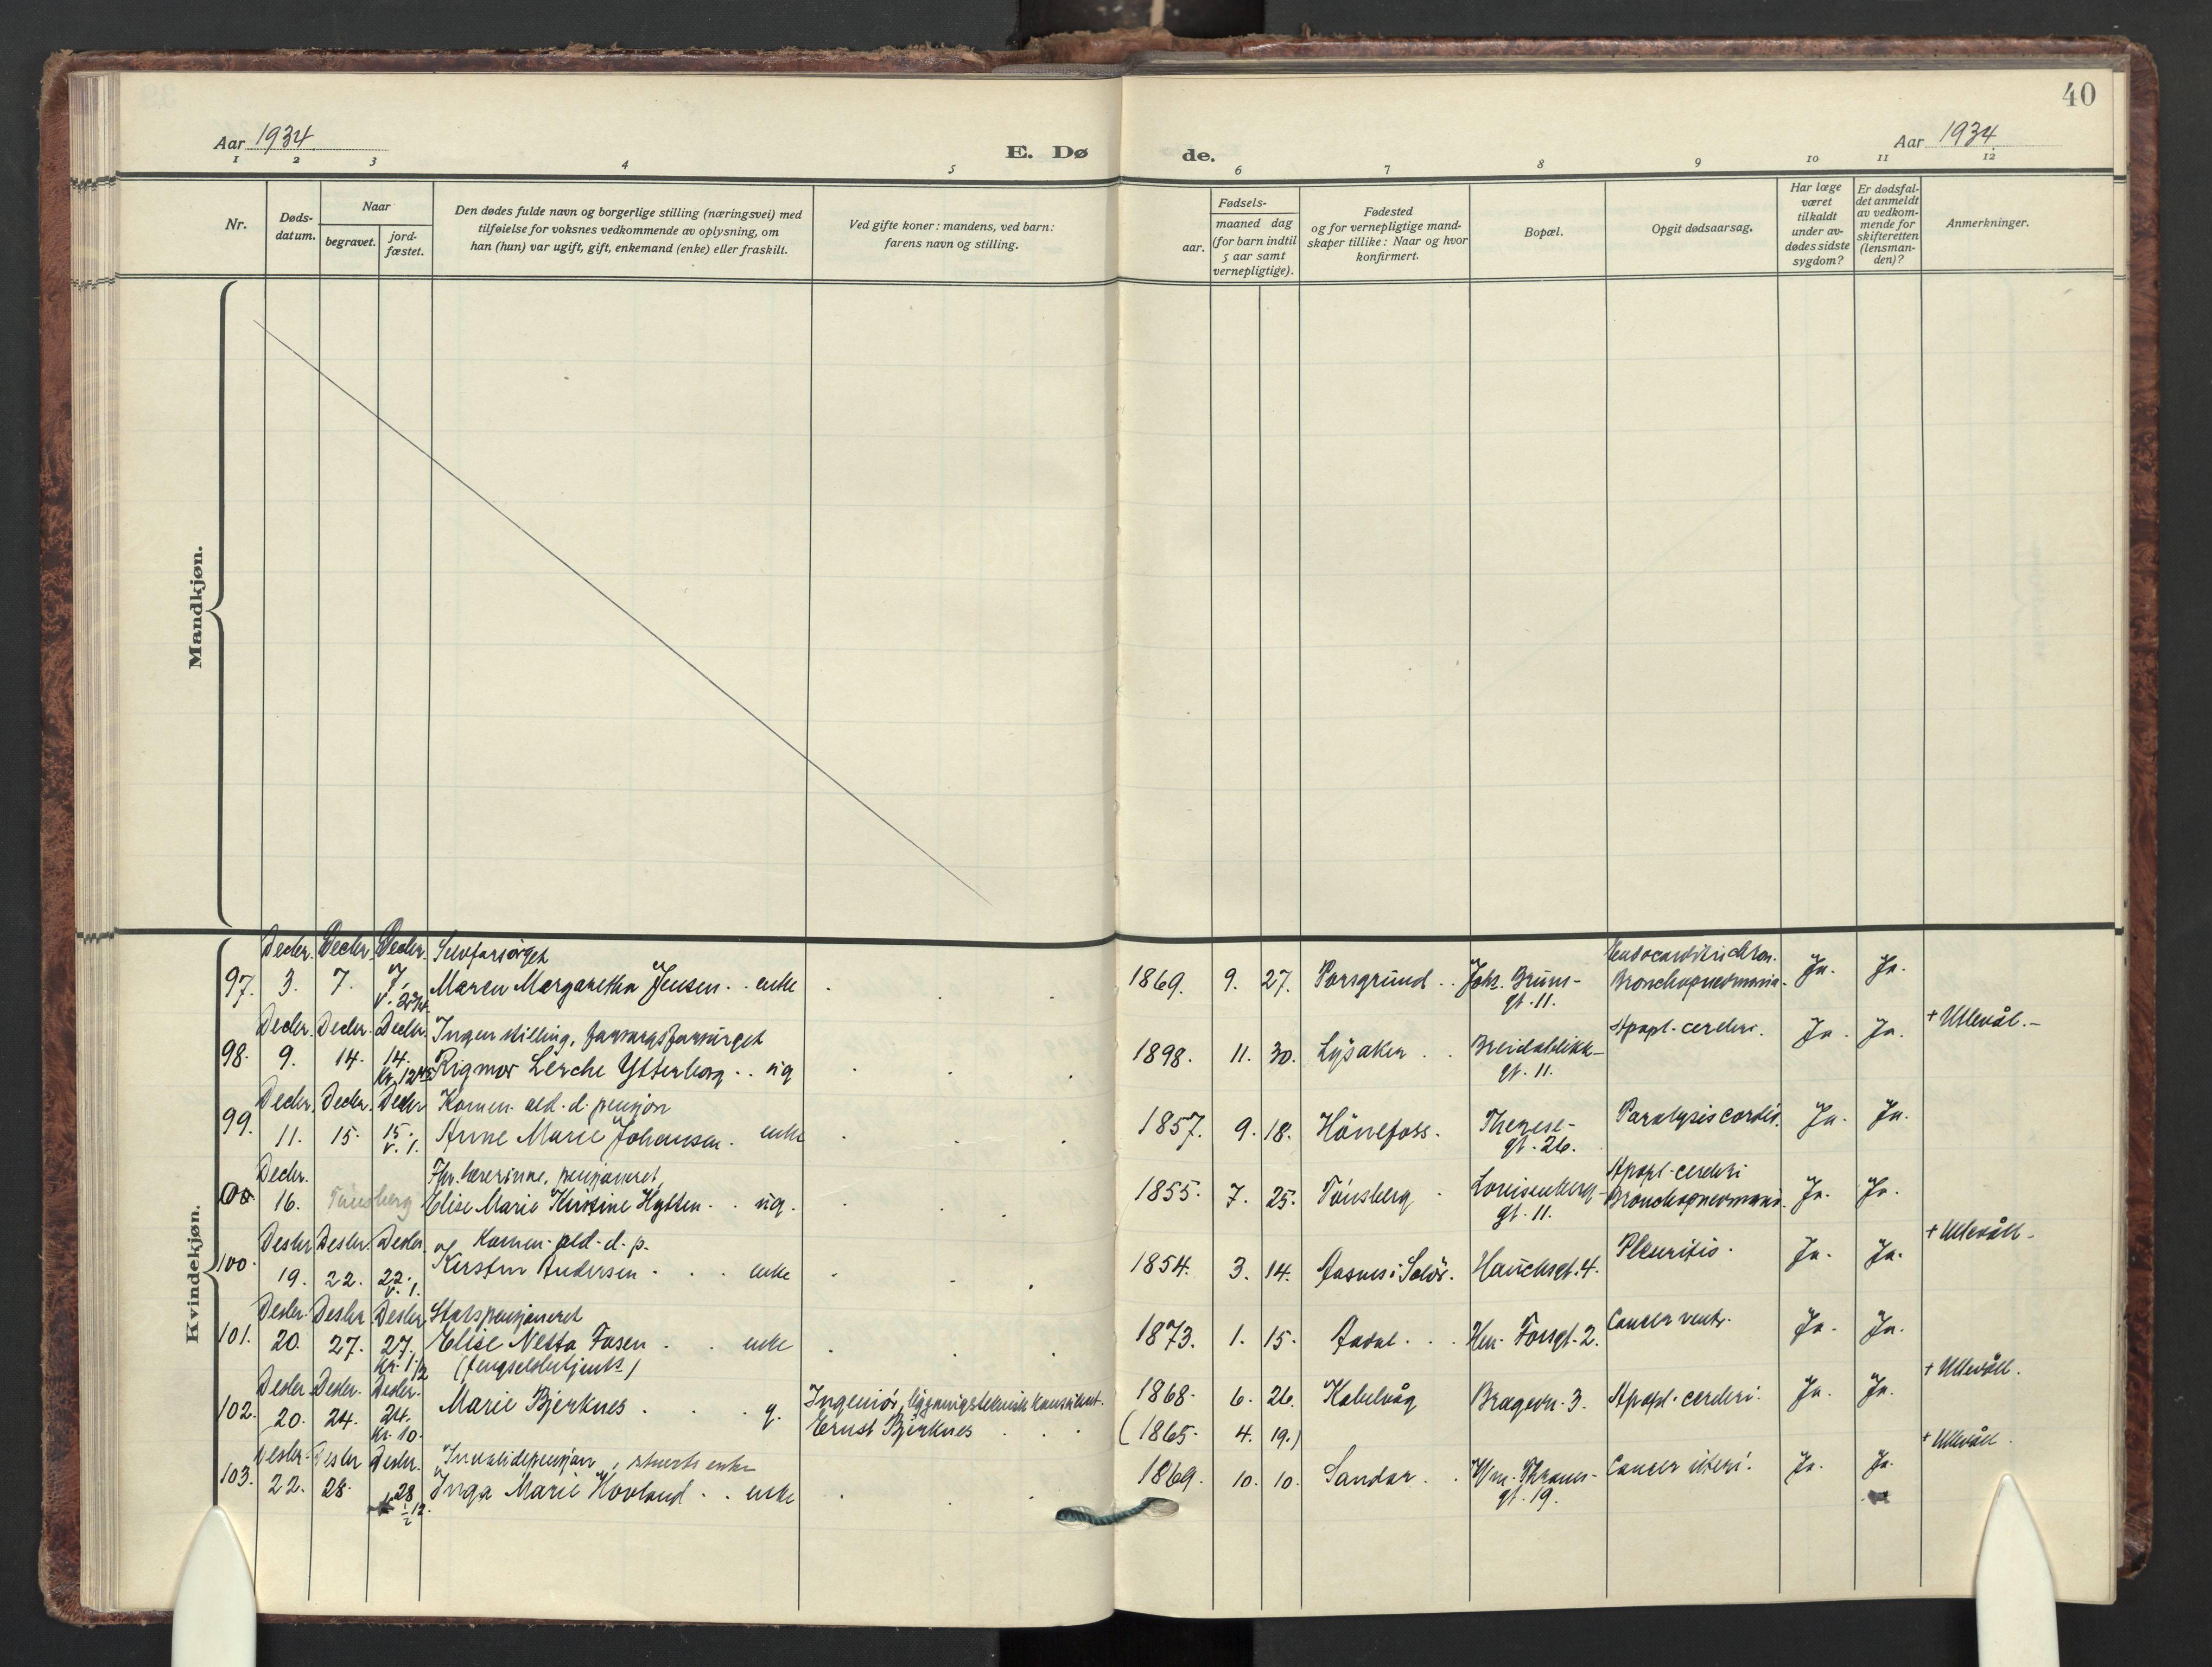 40
Aar 1934
E. Dø de.
Aar 1934
1 2 3 4 5 6 7 8 9 10 11 12
Nr.
Døds-
datum.
Naar
begravet.
jord-
fæstet.
Den dødes fulde navn og borgerlige stilling (næringsvei) med
tilføielse for voksnes vedkommende av oplysning, om
han (hun) var ugift, gift, enkemand (enke) eller fraskilt.
Ved gifte koner: mandens, ved barn:
farens navn og stilling.
Fødsels-
aar.
maaned dag
(for barn indtil
5 aar samt
vernepligtige).
Fødested
og for vernepligtige mand-
skaper tillike: Naar og hvor
konfirmert.
Bopæl.
Opgit dødsaarsag.
Har læge
været
tilkaldt
under av-
dødes sidste
sygdom?
Er dødsfal-
det anmeldt
av vedkom-
mende for
skifteretten
(lensman-
den)?
Anmerkninger.
Mandkjøn.
Kvindekjøn.
Decbr. Decbr. Decbr. Selvforsørget Endocarditis chron.
97. 3. 7. 7. Maren Margaretha Jensen . . enke 1869. 9. 27. Porsgrund . . Johs. Bruns- Bronchopneumonia. Ja. Ja.
gt. 11.
Decbr. Decbr. Decbr. Ingen stilling, forsorgsforsørget Apopl. cerebri. + Ullevål.-
98. 9. 14. 14. Rigmor Lerche Ytterborg . . ug 1898. 11. 30. Lysaker . . Breidablikk- Ja. Ja.
Kr. 12 45 gt. 11.
Decbr. Decbr. Decbr Komm. ald. d. pensjon
99. 11. 15. 15. Anne Marie Johansen. enke 1857. 9. 18. Hönefoss. Therese- Paralysis cordis. Ja. Ja.
v. 1. gt. 26.
Decbr. Fhv. lærerinne, pensjoneret, Apopl. cerebri
16. Tönsberg Elise Marie Kristine Hytten . . ug. 1855. 7. 25. Tönsberg . Louisenberg- Bronchopneumoni. Ja. Ja.
gt. 11.
Desbr Desbr. Desbr. Komm. ald. d. p. + Ullevåll.
100. 19. 22. 22. Kirsten Andersen . . . enke 1854. 3. 14. Aasnes i Solör. Hauchsgt. 4. Pleuritis. Ja. Ja.
v. 1.
Desbr. Desbr Desbr Statspensjoneret
101. 20. 27. 27. Elise Netta Fosen . . enke 1873. 1. 15. Aadal . . . Hm. Fossgt. 2. Cancer ventr. Ja. Ja.
Kr. 1 1/2 (fengselsbetjents)
Desbr. Desbr. Desbr. + Ullevåll.
102. 20. 24. 24. Marie Bjerknes . . . g. Ingeniör, ligningsteknisk konsulent. 1868. 6. 26. Kabelvåg Bragevn. 3. Apopl. cerebri. Ja. Ja.
Kr. 10. Ernst Bjerknes . . . (1865. 4. 19.)
Desbr. Desbr Desbr. Invalidepensjon, + Ullevåll.
103. 22. 28. 28 Inga Marie Hovland . . enke 1869. 10. 10. Sandar . . Wm. Thranes- Cancer uteri. Ja. Ja.
1/2 12. gt. 19.